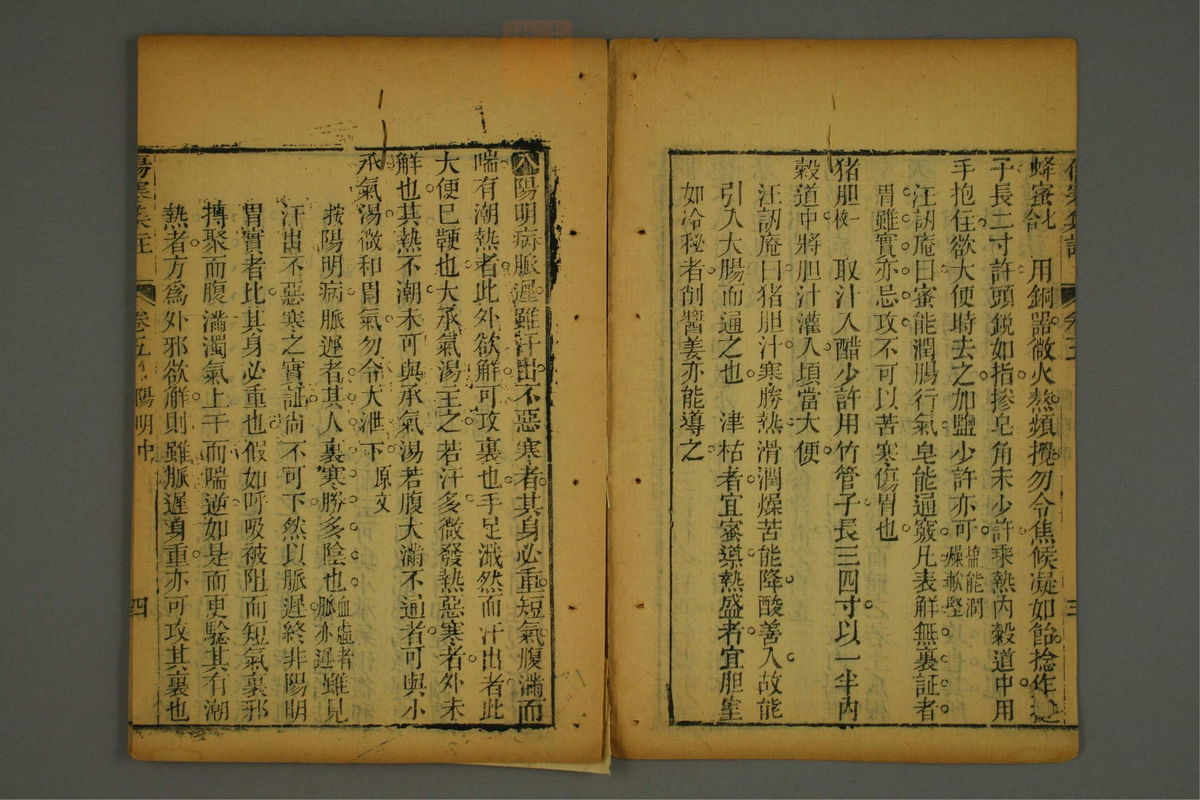 蜂蜜七合 用銅器微火熬頻攪勿令焦候凝如飴捻作挺
子長二寸許頭鋭如指摻皂角末少許乘熱內穀道中用
手抱住欲大便時去之加鹽少許亦可鹽能潤燥軟堅
汪訒庵曰蜜能潤腸行氣皂能通竅凡表解無裏証者
胃雖實亦忌攻不可以苦寒傷胃也
猪胆一枚 取汁入醋少許用竹管子長三四寸以一半內
穀道中將胆汁灌入頃當大便
汪訒庵曰猪胆汁寒勝熱滑潤燥苦能降酸善入故能
引入大腸而通之也 津枯者宜蜜導熱盛者宜胆導
如冷秘者削醬姜亦能導之
三
八陽明病脈遲雖汗出不惡寒者其身必重短氣腹滿而
喘有潮熱者此外欲解可攻裏也手足濈然而汗出者此
大便已鞕也大承氣湯主之若汗多微發熱惡寒者外未
解也其熱不潮未可與承氣湯若腹大滿不通者可與小
承氣湯微和胃氣勿令大泄下 原文
按陽明病脈遲者其人裏寒勝多陰也血虛者脈亦遲雖見
汗出不惡寒之實証尚不可下然以脈遲終非陽明
胃實者比其身必重也假如呼吸被阻而短氣裏邪
搏聚而腹滿濁氣上干而喘逆如是而更騐其有潮
熱者方爲外邪欲解則雖脈遲身重亦可攻其裏也
傷寒集註 卷五 陽明中 四